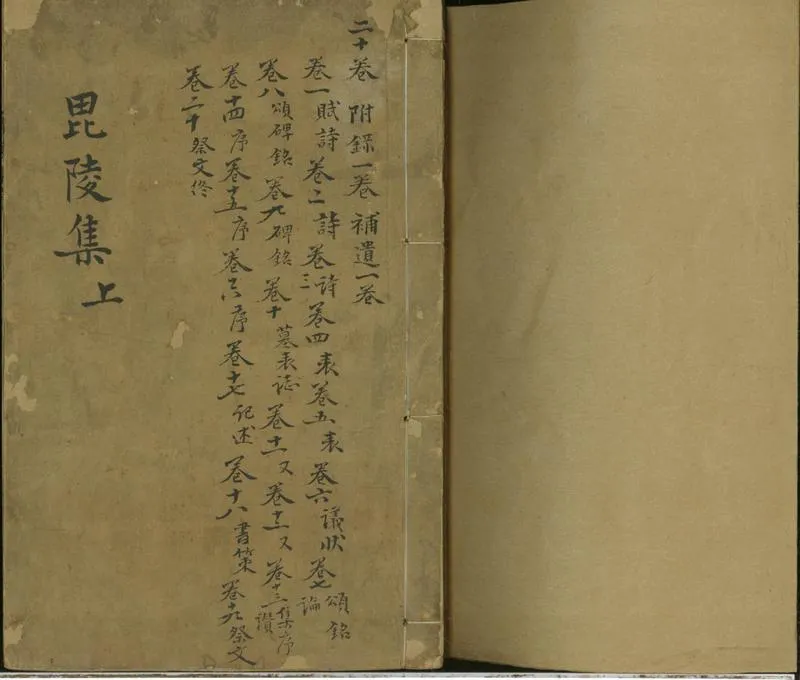 二十卷 附錄一卷 補遺一卷
卷一賦詩 卷二詩 卷三詩 卷四表 卷五表 卷六議狀 卷七頌銘論
卷八頌碑銘 卷九碑銘 卷十墓表誌 卷十一又 卷十二又 卷十三集序讚
卷十四序 卷十五序 卷十六序 卷十七記述 卷十八書策 卷十九祭文
卷二十祭文終
毘陵集上